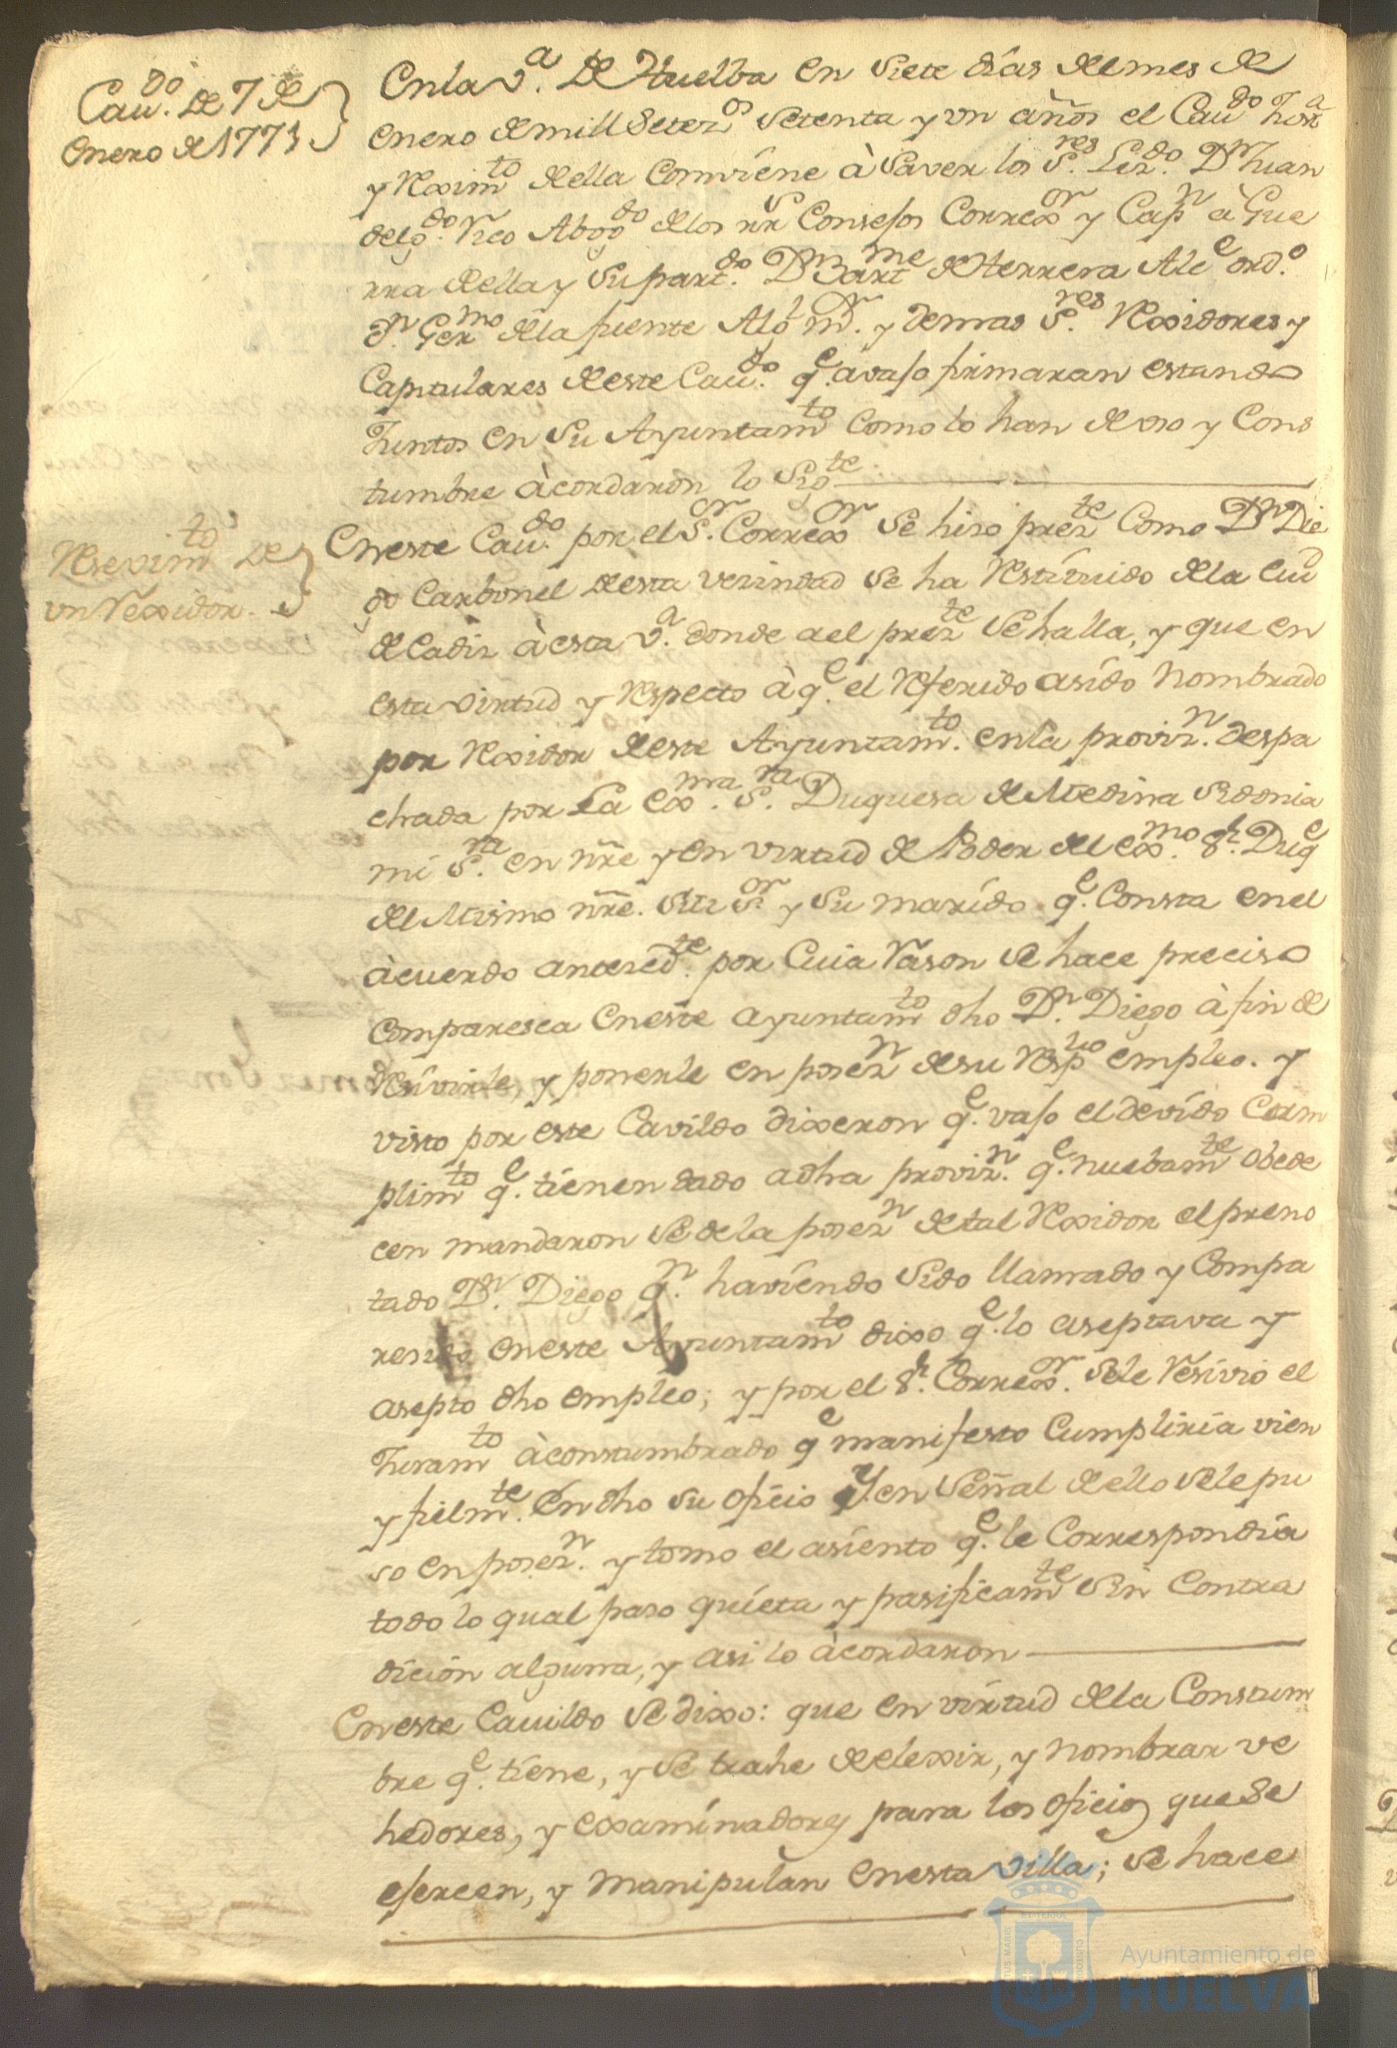 Caudo. de 7 de
Enero de 1771
En la va. de Huelba en Siete dias del mes de
enero de mill Setezos Setenta y un años el Caudo Justa
y Reximto della Comviene à Saver los Sres. Lizdo. Dn Juan
delgdo. Rico Abogdo de los rrs Consejos Correxor y Capn a Gue
rra della y Su partdo. Dn Bartme de Herrera Alce ordo.
Dn. Germo de la fuente Algl mr. y demas Sres. Rexidores y
Capitulares de este Caudo. qe. avajo firmaran estando
Juntos en Su Ayuntamto Como lo han de uso y Cons
tumbre àcordaron lo Sigte.
En este Caudo. por el Sor. Correxor Se hiso prezte Como Dn Die
go Carbonel de esta vezindad Se ha Restituido de la Ciud
de Cadiz à esta va. donde a el prezte Se halla, y que en
esta virtud y Respecto à qe. el Referido asido Nombrado
por Rexidor de este Ayuntamto. en la provizn. despa
chada por La Exma. Sra. Duquesa de Medina Sidonia
mi Sra. en nr̃e y en virtud de Poder del exmo. Sr. Duqe
del Mismo nr̃e. Su Sor y Su marido qe. Consta en el
àcuerdo antecedte. por Cuia Rason Se hace preciso
Comparesca en este ayuntamto dho Dn. Diego à fin de
Resivirle, y ponerle en pozen de su Respvo empleo. y
visto por este Cavildo dixeron qe. vajo el devido Cum
plimto qe. tienen dado a dha provizn. qe. nuebamte Obede
cen mandaron Se de la pozen de tal Rexidor el preno
tado Dn. Diego qn. haviendo Sido llamado y Compa
resido en este Ayuntamto dixo qe. lo aseptava y
asepto dho empleo; y por el Sr. Correxor. Se le Resivio el
Juramto àconstumbrado qe manifesto Cumpliria vien
y fielmte. En dho su oficio y en Señal de ello Se le pu
so en pozen. y tomo el asiento qe. le Correspondia
todo lo qual paso quieta y pasificamte Sin Contra
dicion alguna, y asi lo àcordaron
En este Cauildo Se dixo: que en virtud de la Constum
bre qe. tiene, y Se trahe de elexir, y nombrar ve
hedores, y examinadores para los oficios que Se
ejercen, y manipulan en esta villa; Se hace
Resevimto de
un Rexidor.
Ayuntamiento de
HUELVA